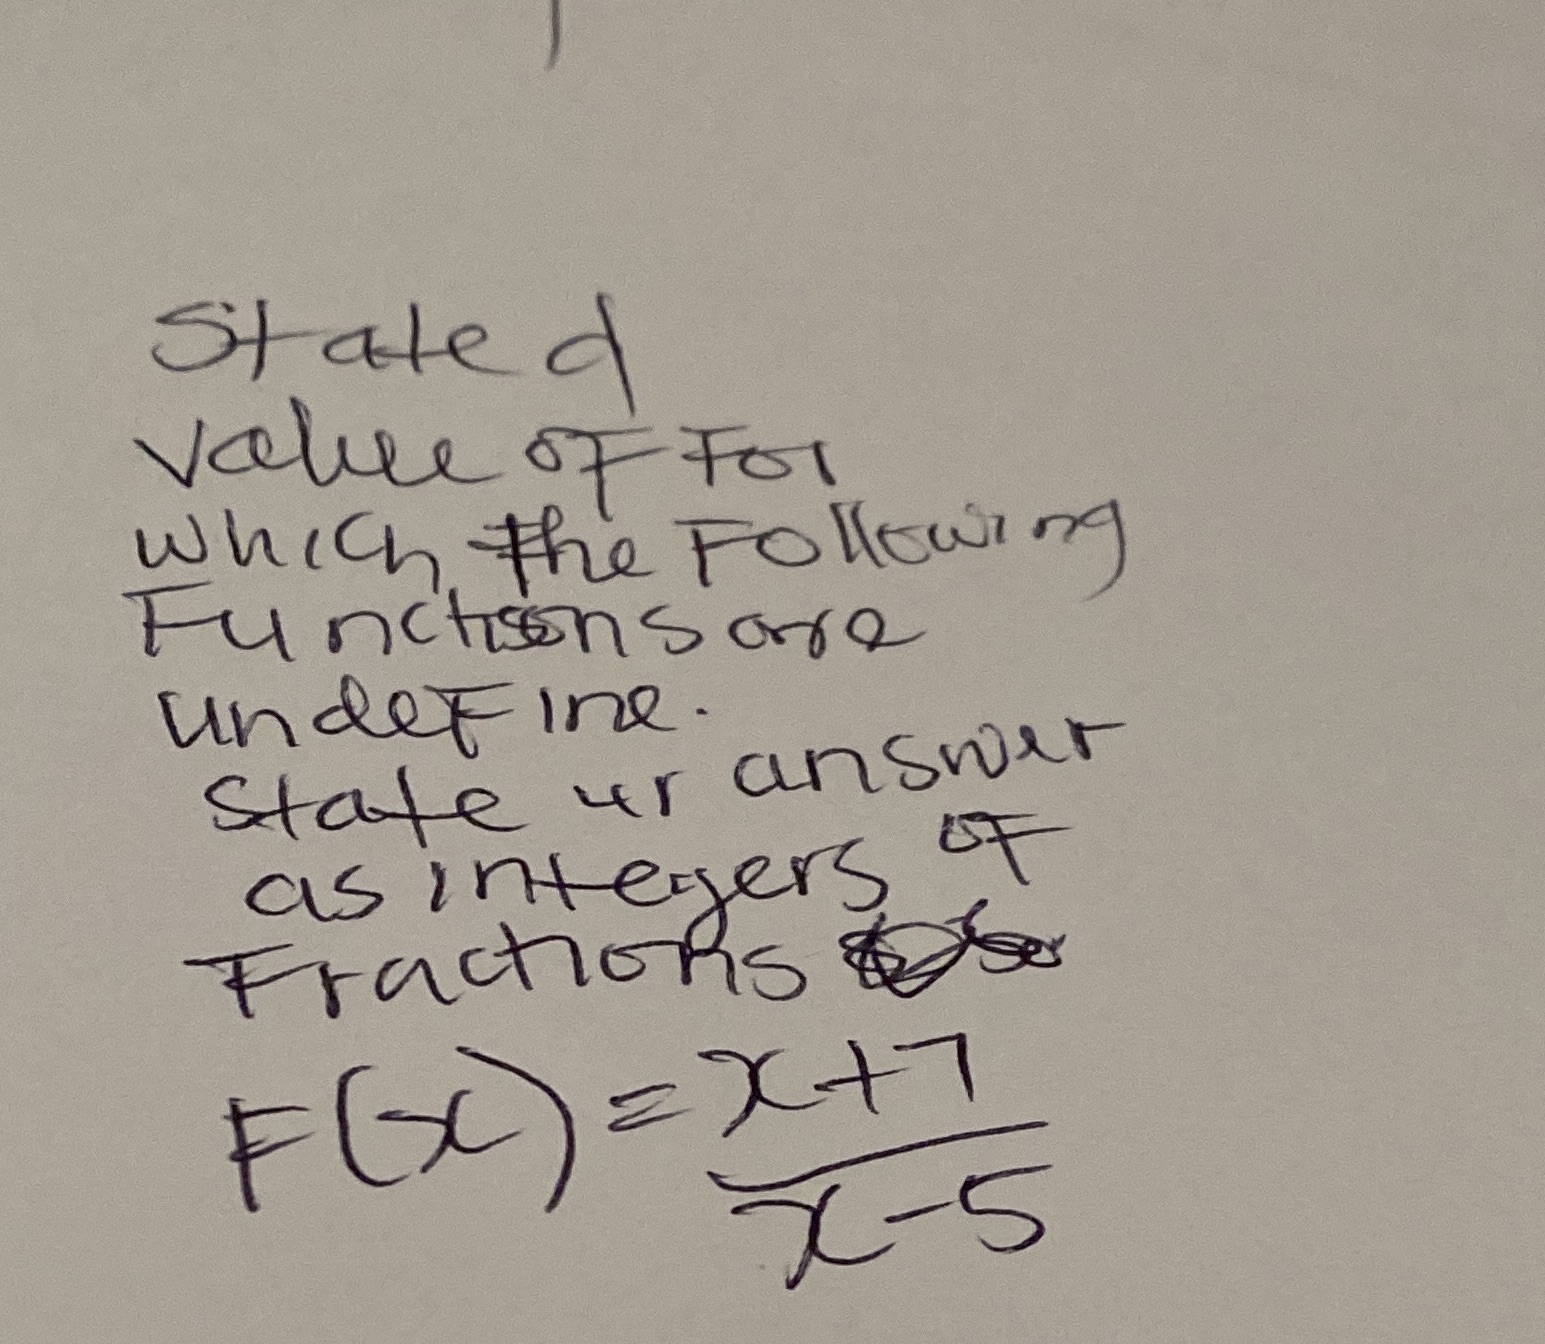 State d
value of For
which the Following
Functions are
undeFine.
State ur answer
as integers of
Fractions
F(x) = x+7
x-5